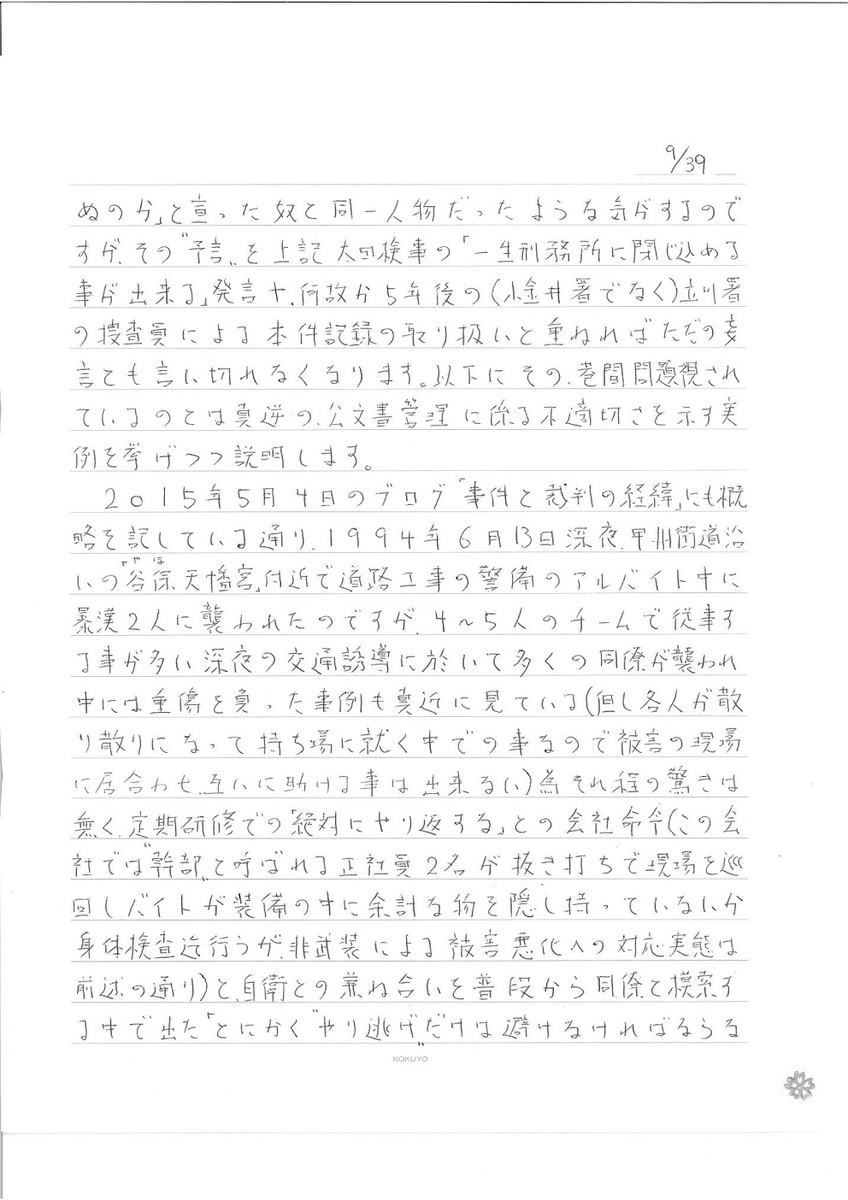 9/39
ぬのか」と宣った奴と同一人物だったような気がするので
すが、その〝予言〟を上記太田検事の「一生刑務所に閉じ込める
事が出来る」発言や、何故か5年後の(小金井署でなく)立川署
の捜査員による本件記録の取り扱いと重ねればただの妄
言とも言い切れなくなります。以下にその、巷間問題視され
ているのとは真逆の、公文書管理に係る不適切さを示す実
例を挙げつつ説明します。
2015年5月4日のブログ「事件と裁判の経緯」にも概
略を記している通り、1994年6月13日深夜、甲州街道沿
いの「谷保天幡宮」付近で道路工事の警備のアルバイト中に
やほ
暴漢2人に襲われたのですが、4~5人のチームで従事す
る事が多い深夜の交通誘導に於いて多くの同僚が襲われ
中には重傷を負った事例も真近に見ている(但し各人が散
り散りになって持ち場に就く中での事なので被害の現場
に居合わせ、互いに助ける事は出来ない)為それ程の驚きは
無く、定期研修での「絶対にやり返すな」との会社命令(この会
社では〝幹部〟と呼ばれる正社員2名が抜き打ちで現場を巡
回しバイトが装備の中に余計な物を隠し持っていないか
身体検査迄行うが、非武装による被害悪化への対応実態は
前述の通り)と、自衛との兼ね合いを普段から同僚と模索す
る中で出た「とにかく〝やり逃げ〟だけは避けなければならな
KOKUYO